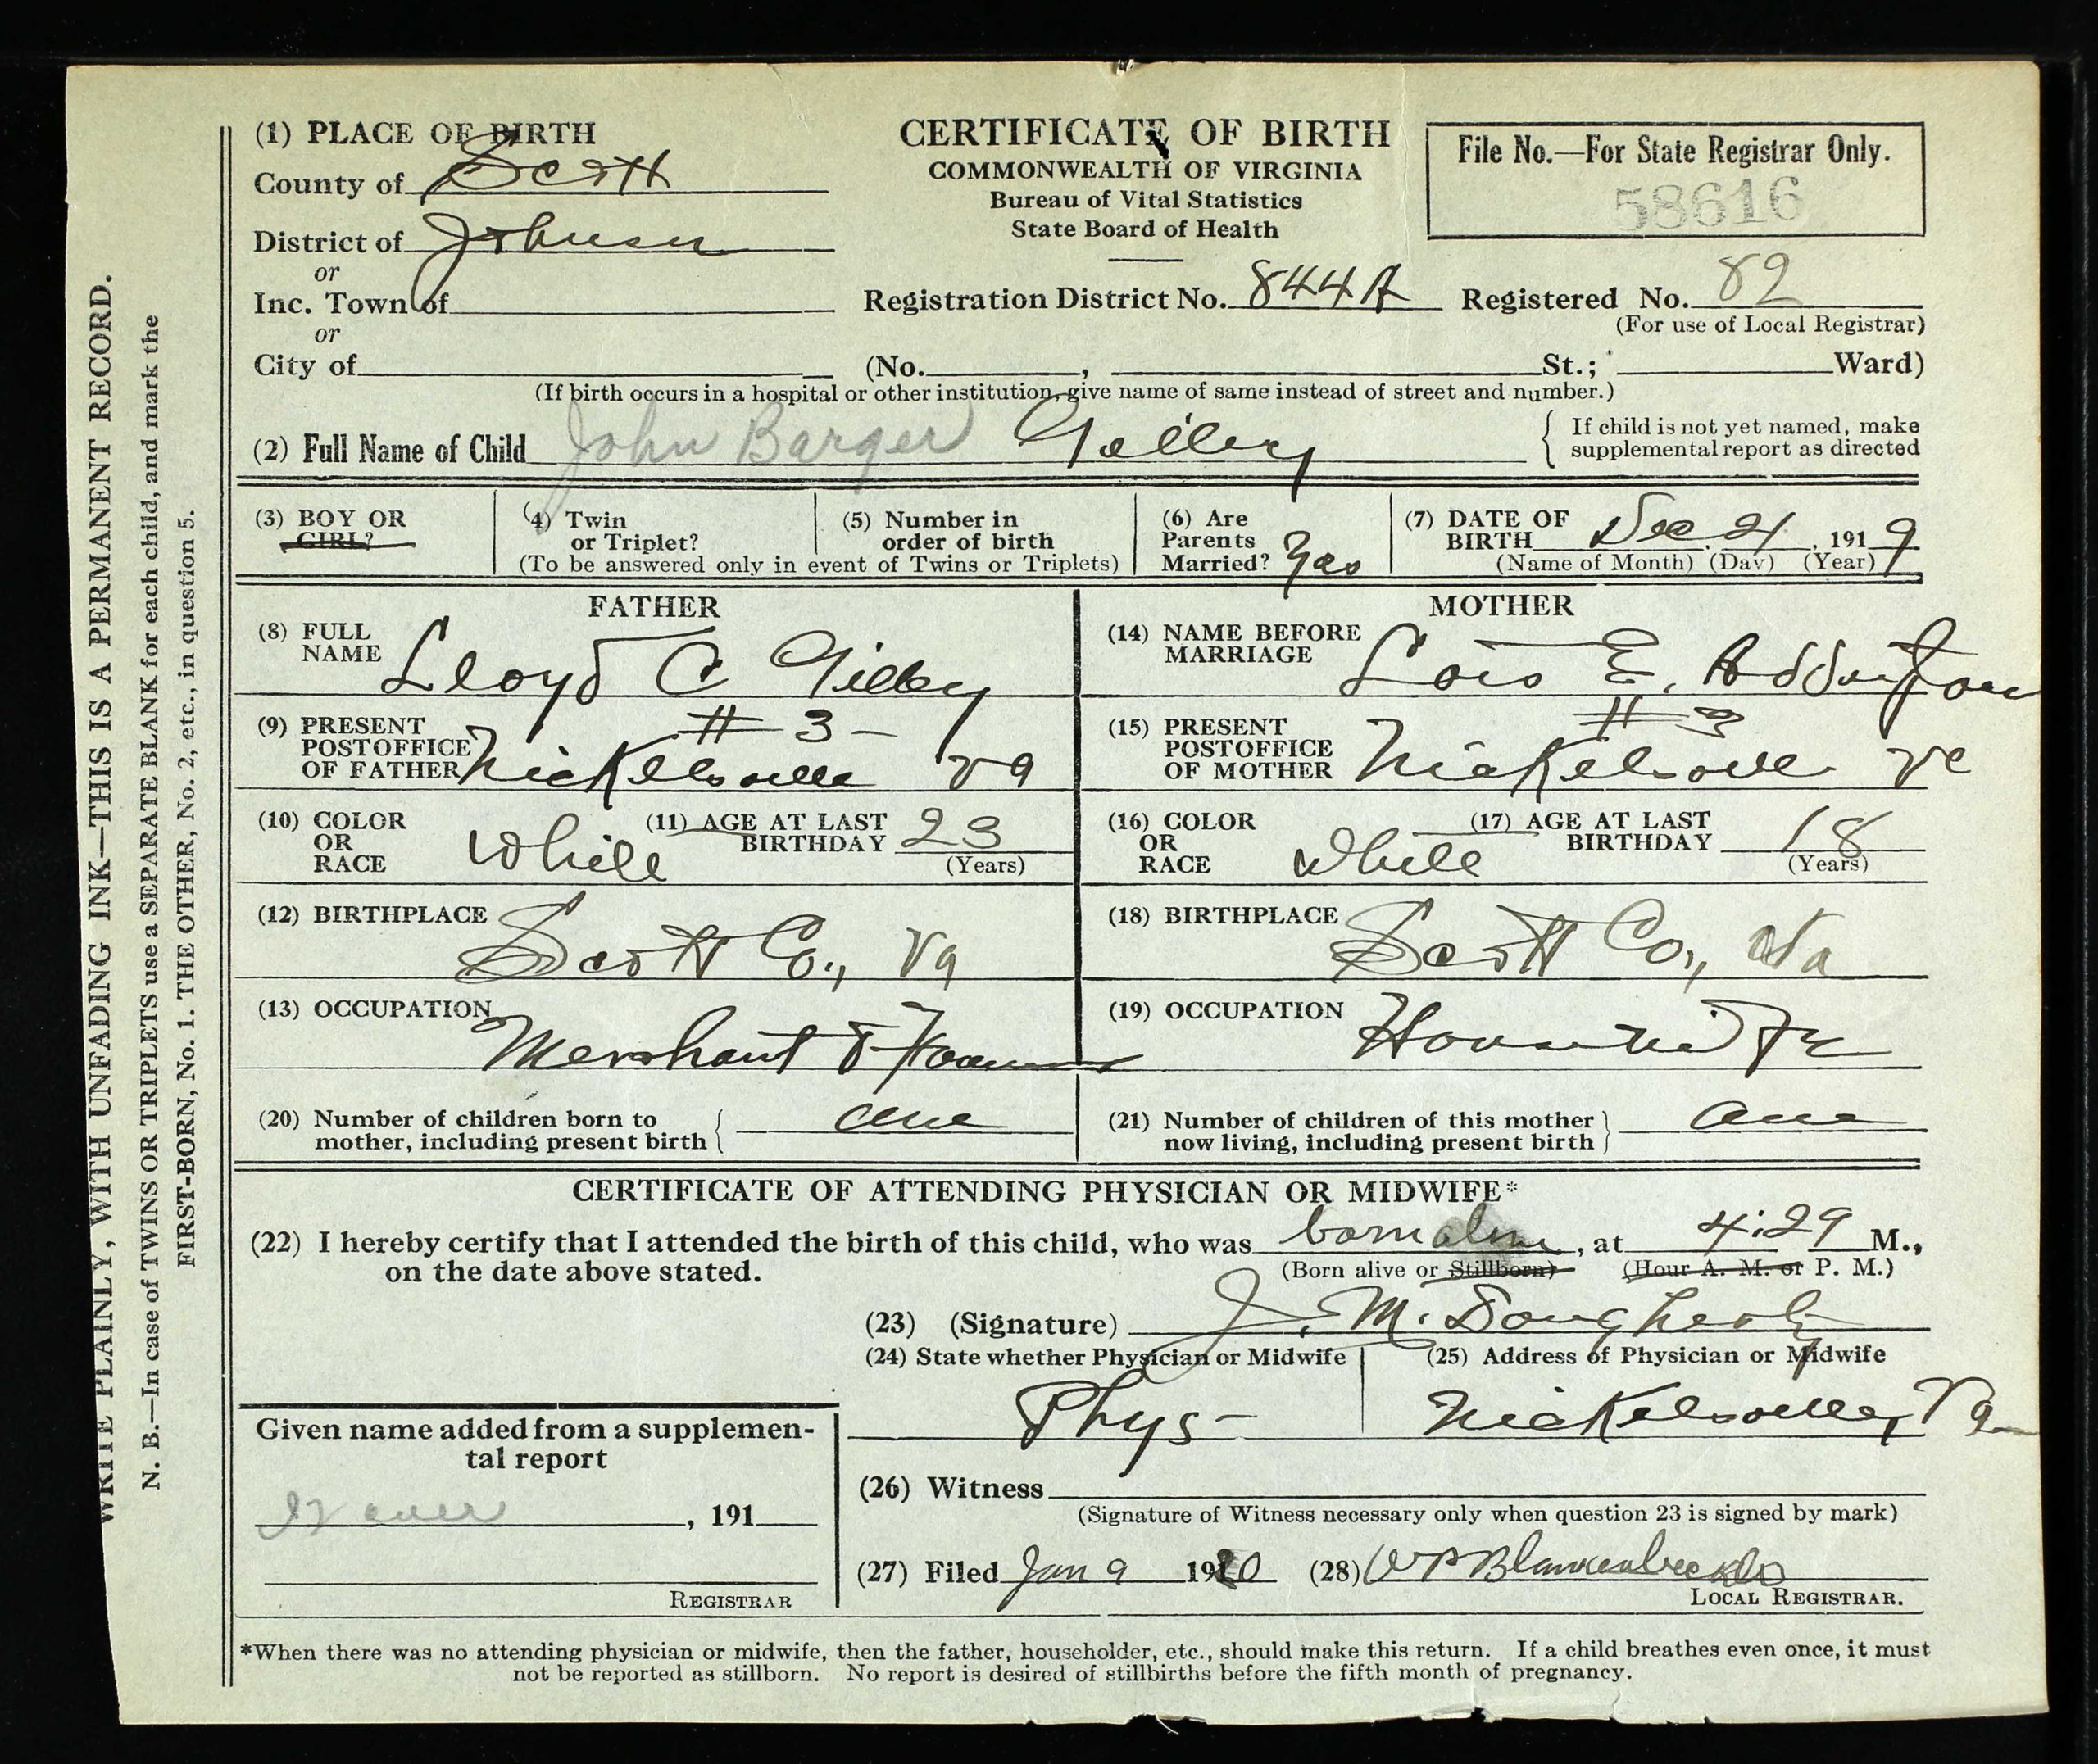 WRITE PLAINLY, WITH UNFADING INK—THIS IS A PERMANENT RECORD.
N. B.—In case of TWINS OR TRIPLETS use a SEPARATE BLANK for each child, and mark the
FIRST-BORN, No. 1. THE OTHER, No. 2, etc., in question 5.
(1) PLACE OF BIRTH
County of Scott
District of Johnson
or
Inc. Town of
or
City of
CERTIFICATE OF BIRTH
COMMONWEALTH OF VIRGINIA
Bureau of Vital Statistics
State Board of Health
File No.—For State Registrar Only.
58616
Registration District No. 844A Registered No. 82
(For use of Local Registrar)
(No. , St.; Ward)
(If birth occurs in a hospital or other institution, give name of same instead of street and number.)
(2) Full Name of Child John Barger Gilley
If child is not yet named, make
supplemental report as directed
(3) BOY OR
GIRL?
(4) Twin
or Triplet?
(5) Number in
order of birth
(To be answered only in event of Twins or Triplets)
(6) Are
Parents
Married? Yes
(7) DATE OF
BIRTH Dec 21, 1919
(Name of Month) (Day) (Year)
FATHER
(8) FULL
NAME Lloyd C Gilley
(9) PRESENT
POSTOFFICE
OF FATHER # 3 - Nickelsville Va
(10) COLOR
OR
RACE White
(11) AGE AT LAST
BIRTHDAY 23
(Years)
(12) BIRTHPLACE Scott Co., Va
(13) OCCUPATION Merchant & Farmer
MOTHER
(14) NAME BEFORE
MARRIAGE Lois E. Addington
(15) PRESENT
POSTOFFICE
OF MOTHER # 3 Nickelsville Va
(16) COLOR
OR
RACE White
(17) AGE AT LAST
BIRTHDAY 18
(Years)
(18) BIRTHPLACE Scott Co., Va
(19) OCCUPATION Housewife
(20) Number of children born to
mother, including present birth one
(21) Number of children of this mother
now living, including present birth one
CERTIFICATE OF ATTENDING PHYSICIAN OR MIDWIFE*
(22) I hereby certify that I attended the birth of this child, who was born alive, at 4:29 M.,
on the date above stated. (Born alive or Stillborn) (Hour A. M. or P. M.)
(23) (Signature) J. M. Dougherty
(24) State whether Physician or Midwife
Phys-
(25) Address of Physician or Midwife
Nickelsville, Va
Given name added from a supplemen-
tal report
, 191
REGISTRAR
(26) Witness
(Signature of Witness necessary only when question 23 is signed by mark)
(27) Filed Jan 9 1920 (28) W P Blankenbeckler
LOCAL REGISTRAR.
*When there was no attending physician or midwife, then the father, householder, etc., should make this return. If a child breathes even once, it must
not be reported as stillborn. No report is desired of stillbirths before the fifth month of pregnancy.